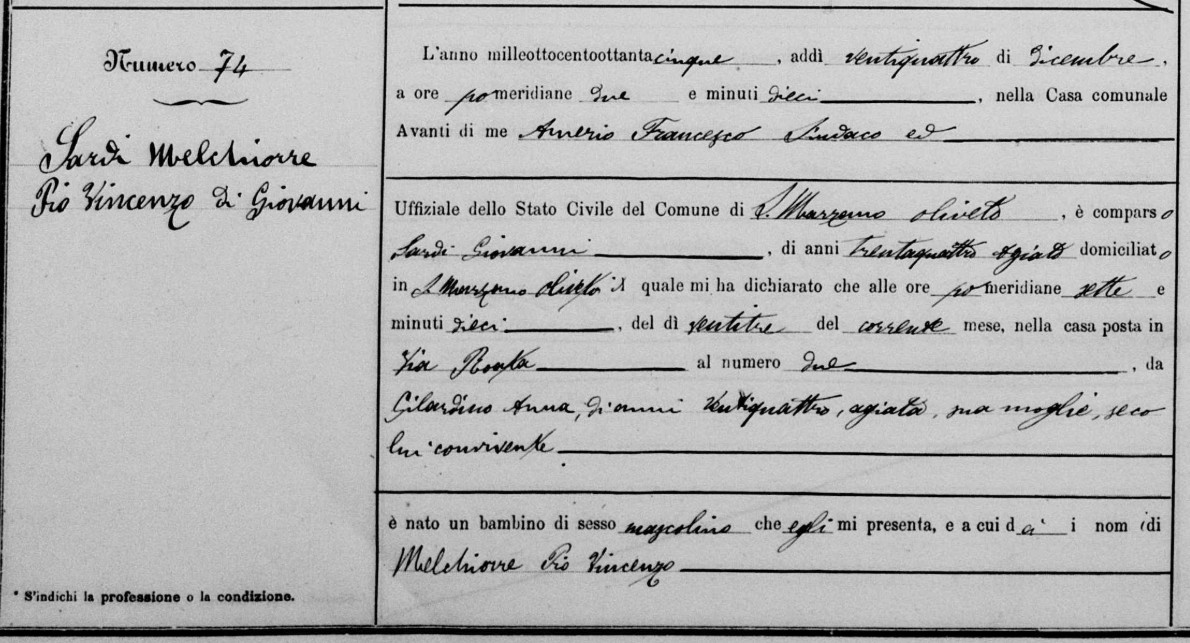 Numero 74
Sardi Melchiorre
Pio Vincenzo di Giovanni
* S'indichi la professione o la condizione.
L'anno milleottocentoottantacinque, addì ventiquattro di Dicembre,
a ore pomeridiane due e minuti dieci, nella Casa comunale
Avanti di me Amerio Francesco Sindaco ed
Uffiziale dello Stato Civile del Comune di S. Marzano oliveto, è comparso
Sardi Giovanni, di anni trentaquattro agiato domiciliato
in S. Marzano oliveto il quale mi ha dichiarato che alle ore pomeridiane sette e
minuti dieci, del dì ventitre del corrente mese, nella casa posta in
Via al numero due, da
Gilardino Anna, di anni ventiquattro, agiata, sua moglie, seco
lui convivente
è nato un bambino di sesso mascolino che egli mi presenta, e a cui dà i nomi di
Melchiorre Pio Vincenzo